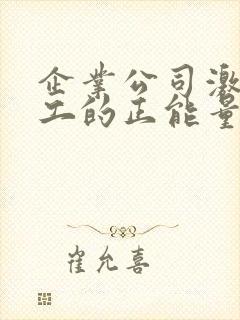 企業公司激
工的正能量
崔允喜